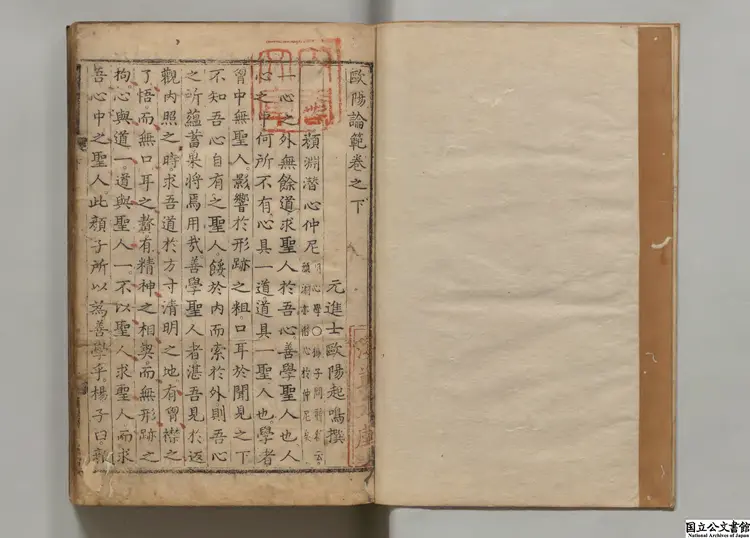 歐陽論範卷之下
元進士歐陽起鳴撰
顏淵潛心仲尼
一心之外無餘道求聖人於吾心善學聖人也人
心之中何所不有心具一道道具一聖人也學者
胷中無聖人影響於形跡之粗口耳於聞見之下
不知吾心自有之聖人餒於內而索於外則吾心
之所蘊蓄果將焉用哉善學聖人者湛吾見於返
觀內照之時求吾道於方寸清明之地有胷襟之
了悟而無口耳之贅有精神之相契而無形跡之
拘心與道一道與聖人一不以聖人求聖人而求
吾心中之聖人此顏子所以為善學乎楊子曰
国立公文書館
National Archives of Japan